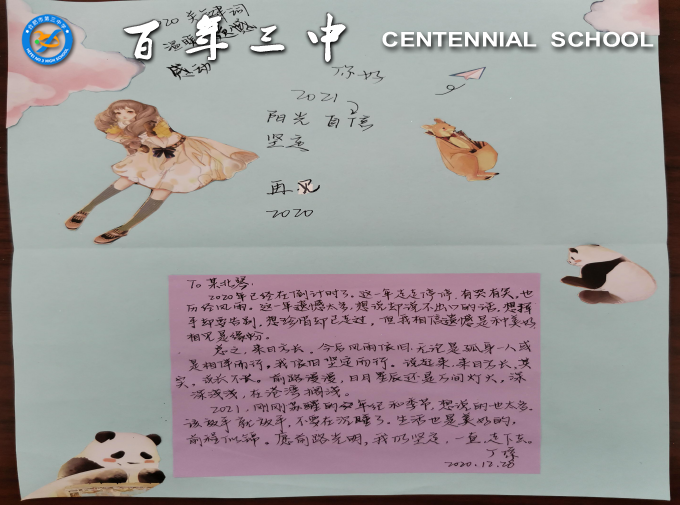 百年三中
CENTENNIAL SCHOOL
合肥市第三中学
HEFEI NO.3 HIGH SCHOOL
20关键词
温暖
感动
你好
2021
阳光 自信
坚定
再见
2020
To 某北琴
2020年已经在倒计时了。这一年走走停停,有哭有笑,也
历经风雨。这一年遗憾太多,想说却说不出口的话,想挥
手却要告别,想珍惜却已走过,但我相信遗憾是和美好
相兄是缘份。
总之,来日方长,今后风雨依旧,无论是孤身一人或
是相伴而行,我依旧坚定而行。说起来,来日方长,其
实,说长不长。前路漫漫,日月星辰还是万间灯火,深
深浅浅,在沧海搁浅。
2021,刚刚苏醒的好年纪和季节,想说的也太多。
该放手就放手,不要在沉睡了。生活也是美好的,
前程似锦。愿前路光明,我仍坚定,一直走下去。
2020.12.28